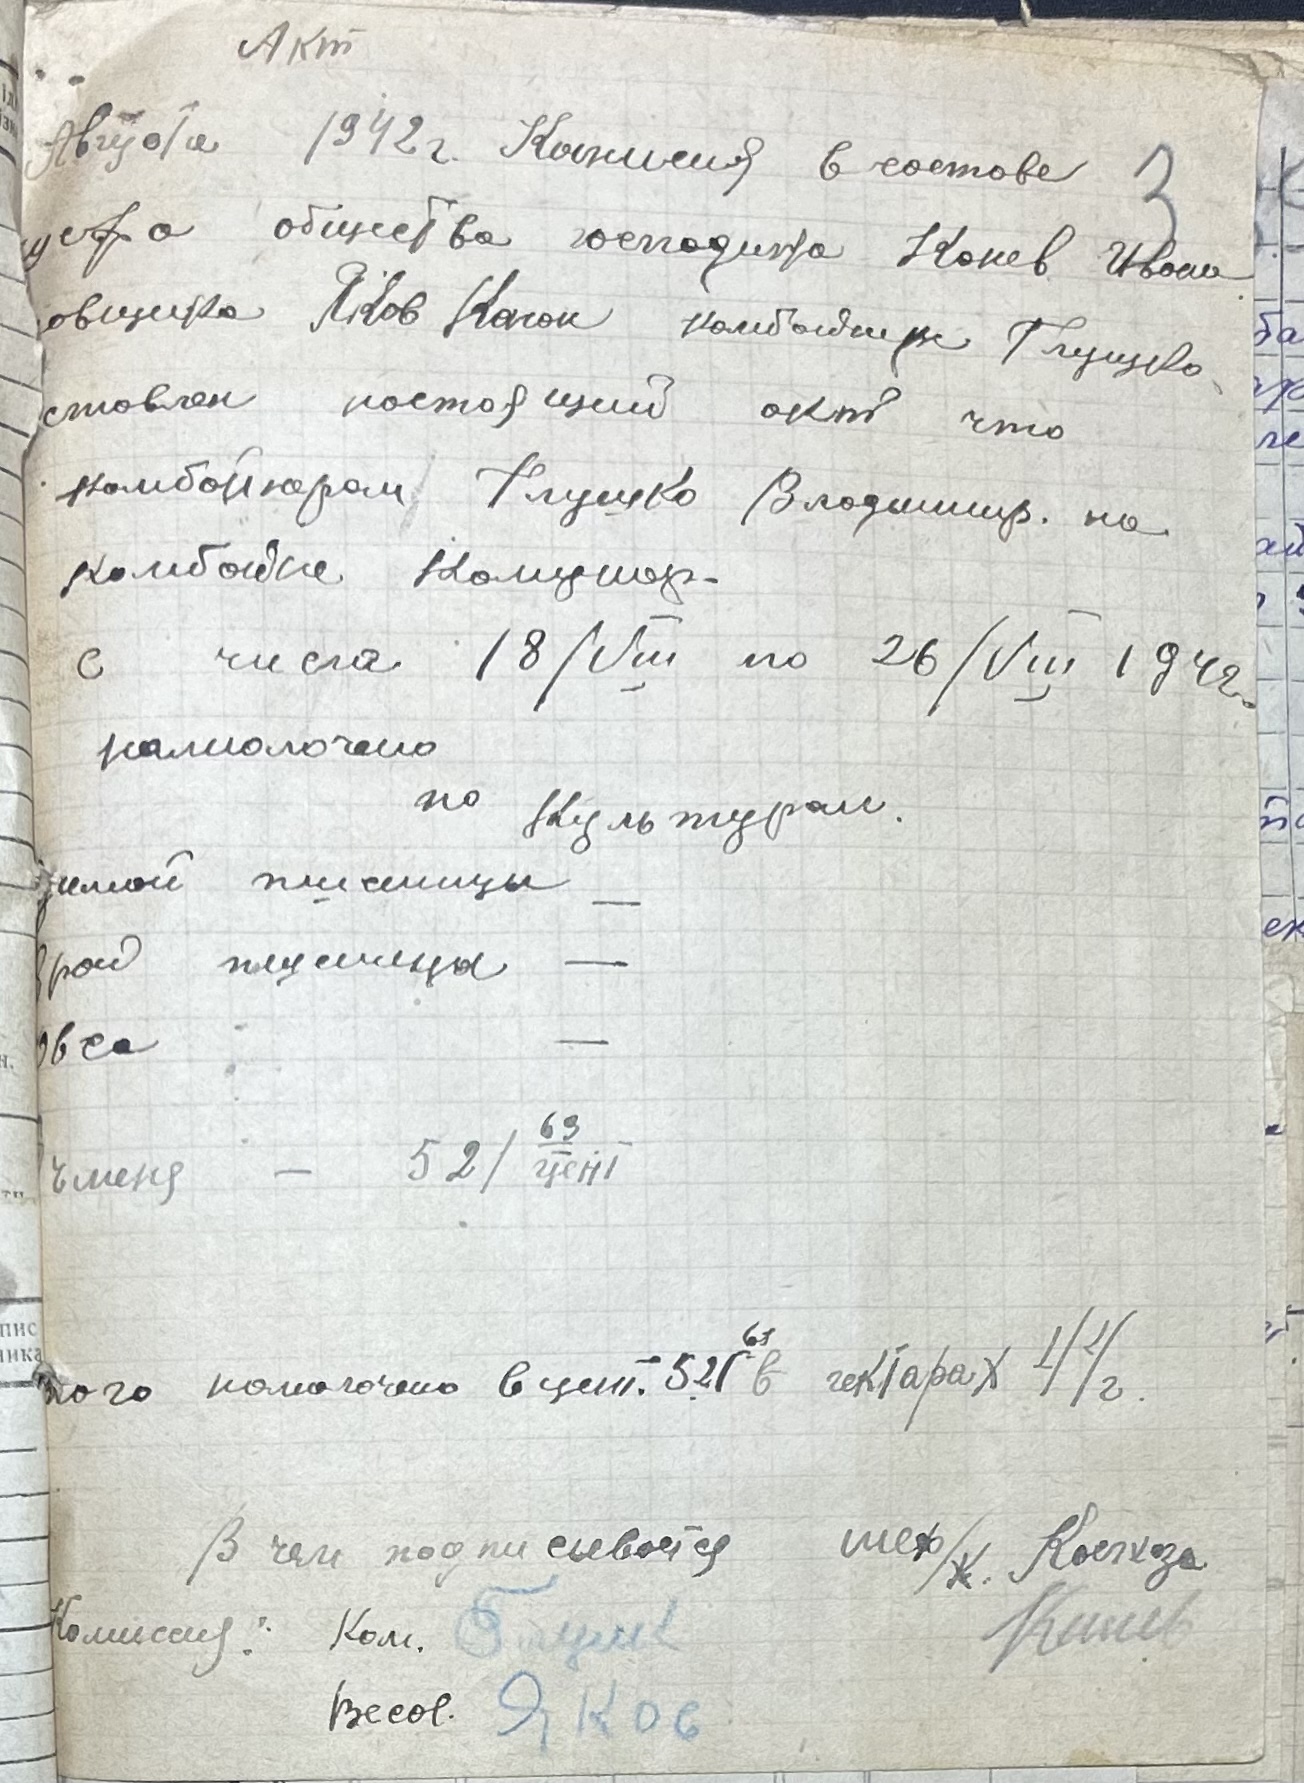 Акт
Августа 1942 г. Комисия в составе 3
общества господина Конев Иван
овщика Яков Качон комбайнер Глушко
ставлен настоящий акт что
комбайнером Глушко Владимир. на
комбайне Комунар-
с числа 18/VIII по 26/VIII 1942.
намолочено
по культурам.
зимой пшеницы —
ярой пшеницы —
овса —
ячменя — 52/ 69 цент
того намолочено в цент. 52/ 69 в гектарах 44/г.
В чем подписывается шеф/к. Колхоза
Комиссия: Ком. Конев
Весов. Яков